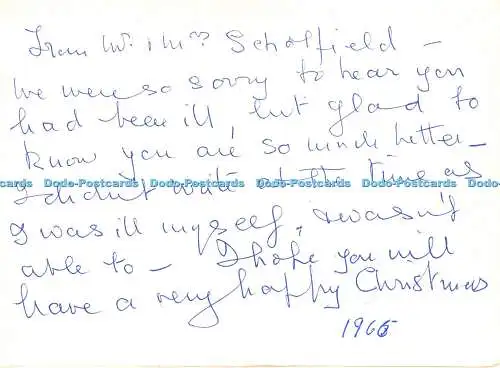 From Mr. & Mrs Scholfield –
We were so sorry to hear you
had been ill, but glad to
know you are so much better –
I didn't write at the time as
Dodo-Postcards | Dodo-Postcards | Dodo-Postcards | Dodo-Postcards | Dodo-Postcards
I was ill myself, & wasn't
able to – I hope you will
have a very happy Christmas
1965